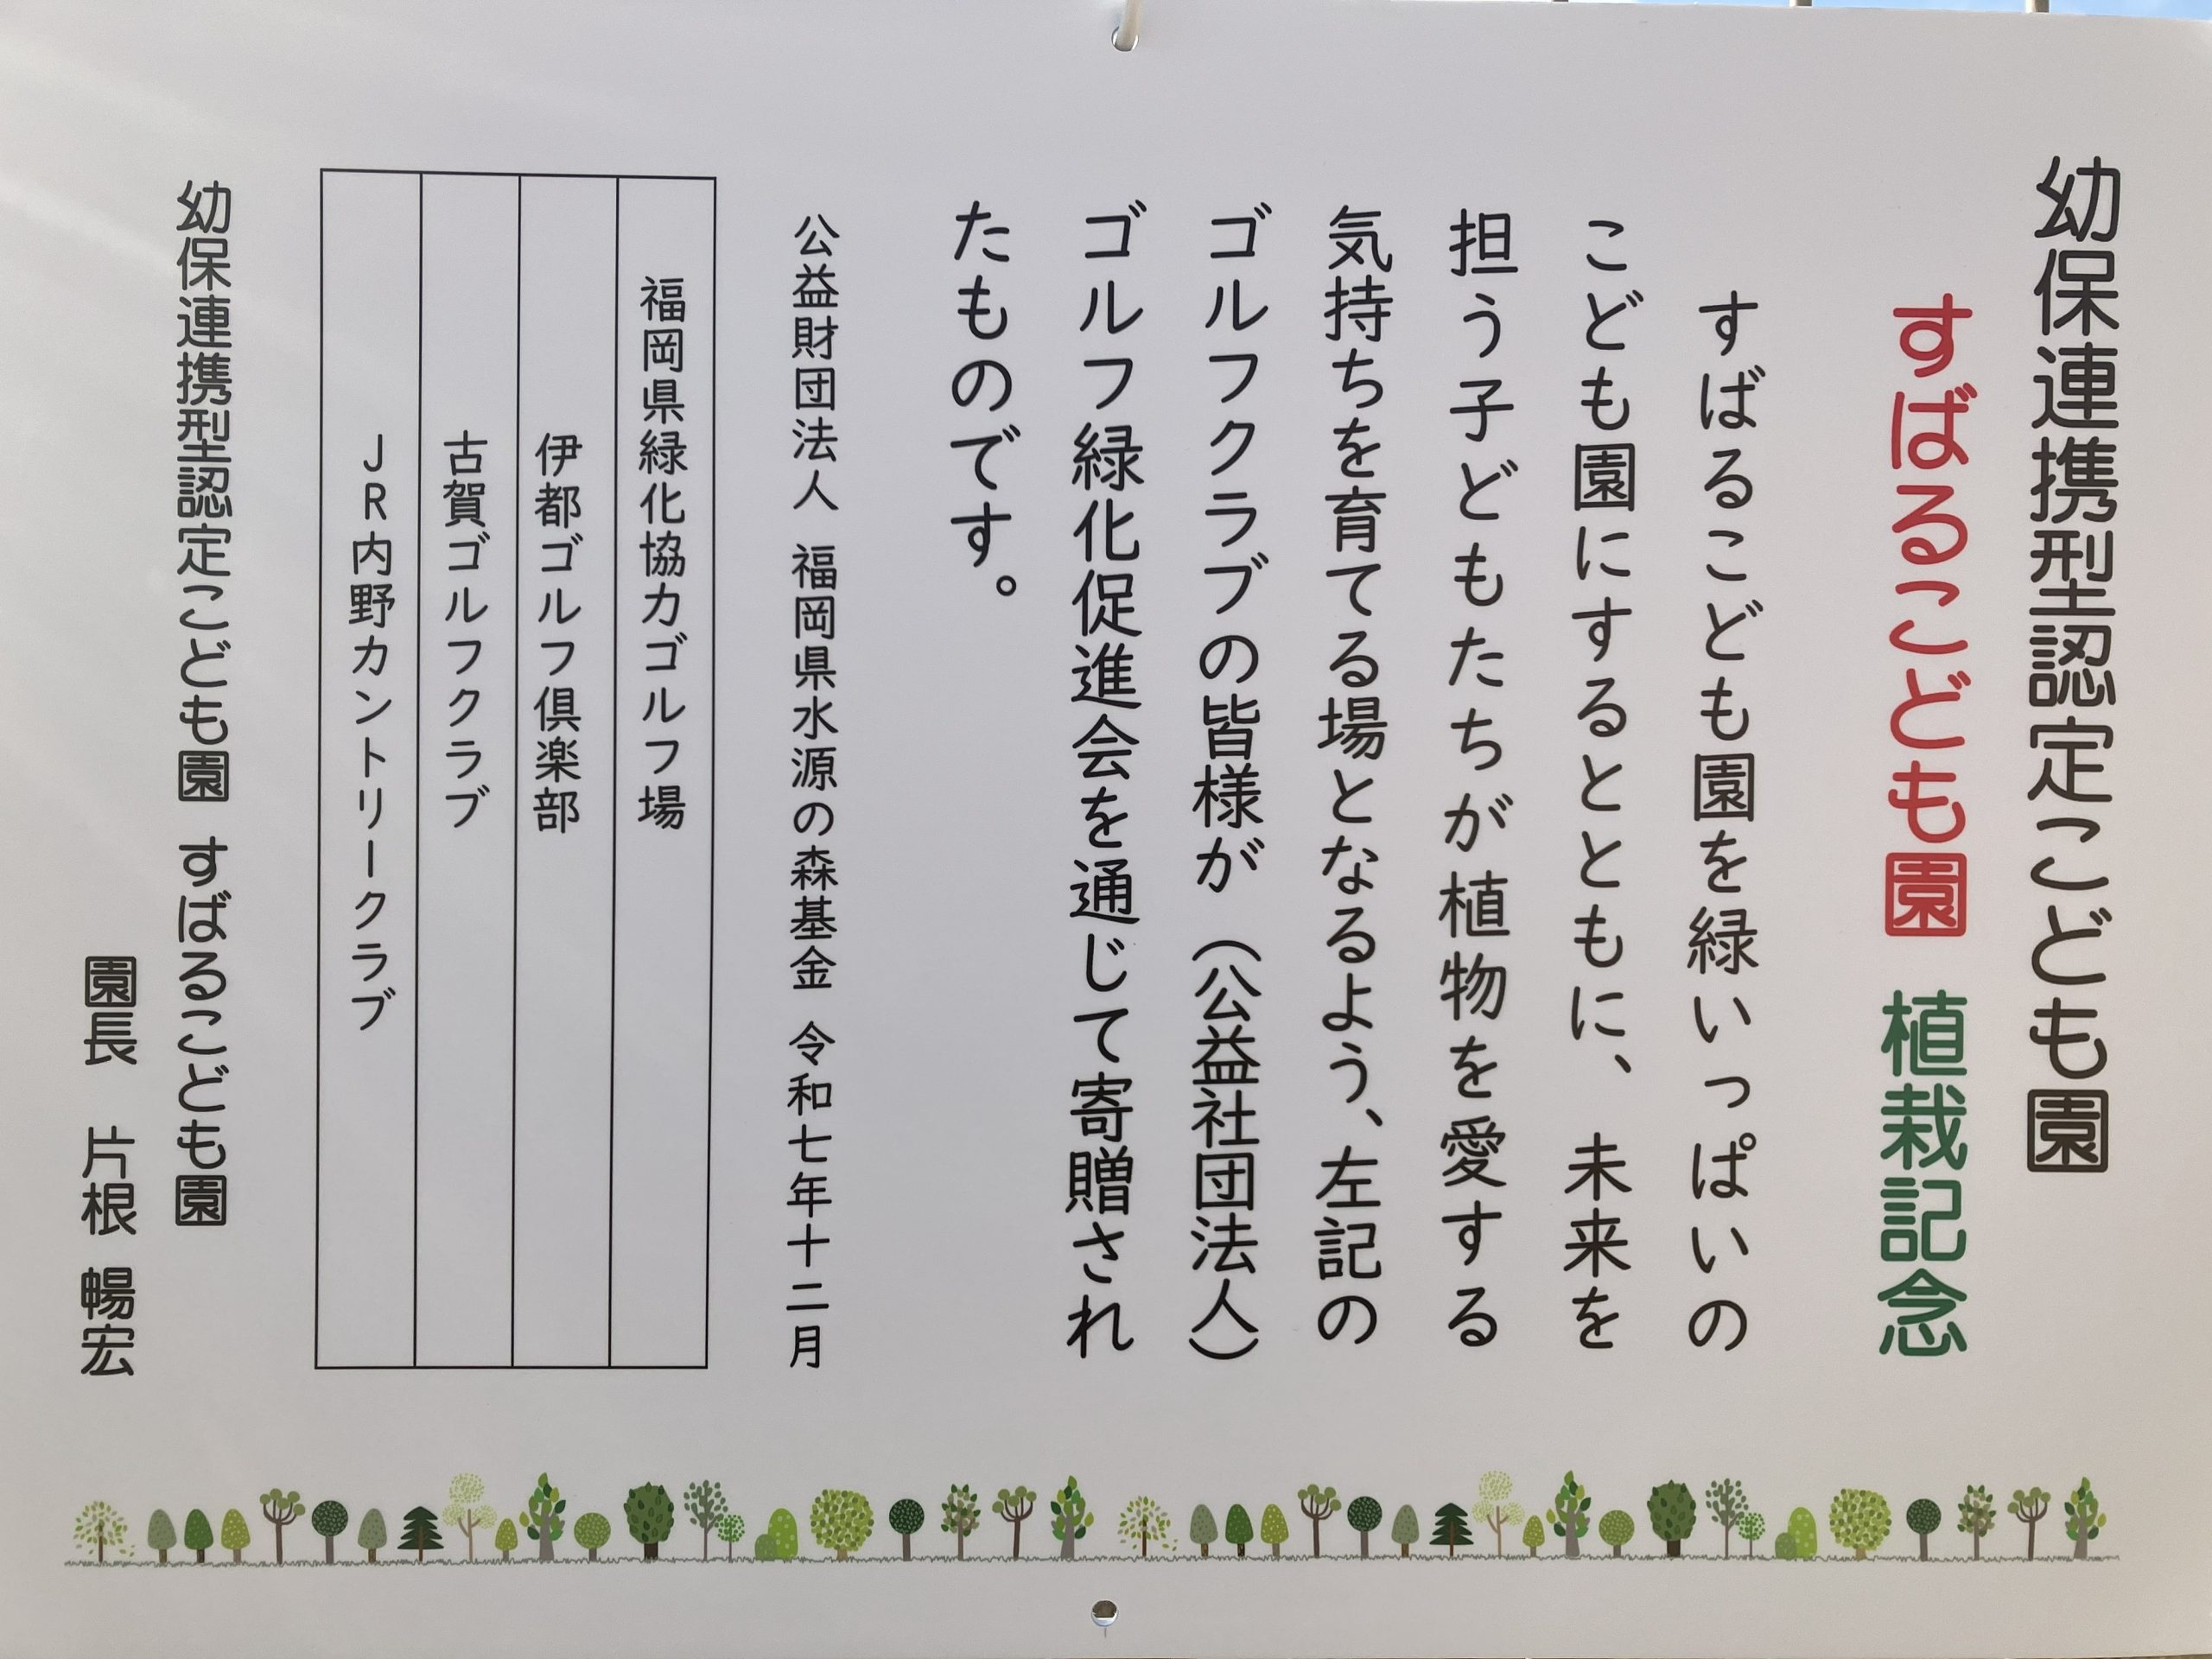 幼保連携型認定こども園
すばるこども園 植栽記念
すばるこども園を緑いっぱいの
こども園にするとともに、未来を
担う子どもたちが植物を愛する
気持ちを育てる場となるよう、左記の
ゴルフクラブの皆様が（公益社団法人）
ゴルフ緑化促進会を通じて寄贈され
たものです。
公益財団法人 福岡県水源の森基金 令和七年十二月
福岡県緑化協力ゴルフ場
伊都ゴルフ倶楽部
古賀ゴルフクラブ
ＪＲ内野カントリークラブ
幼保連携型認定こども園 すばるこども園
園長 片根 暢宏